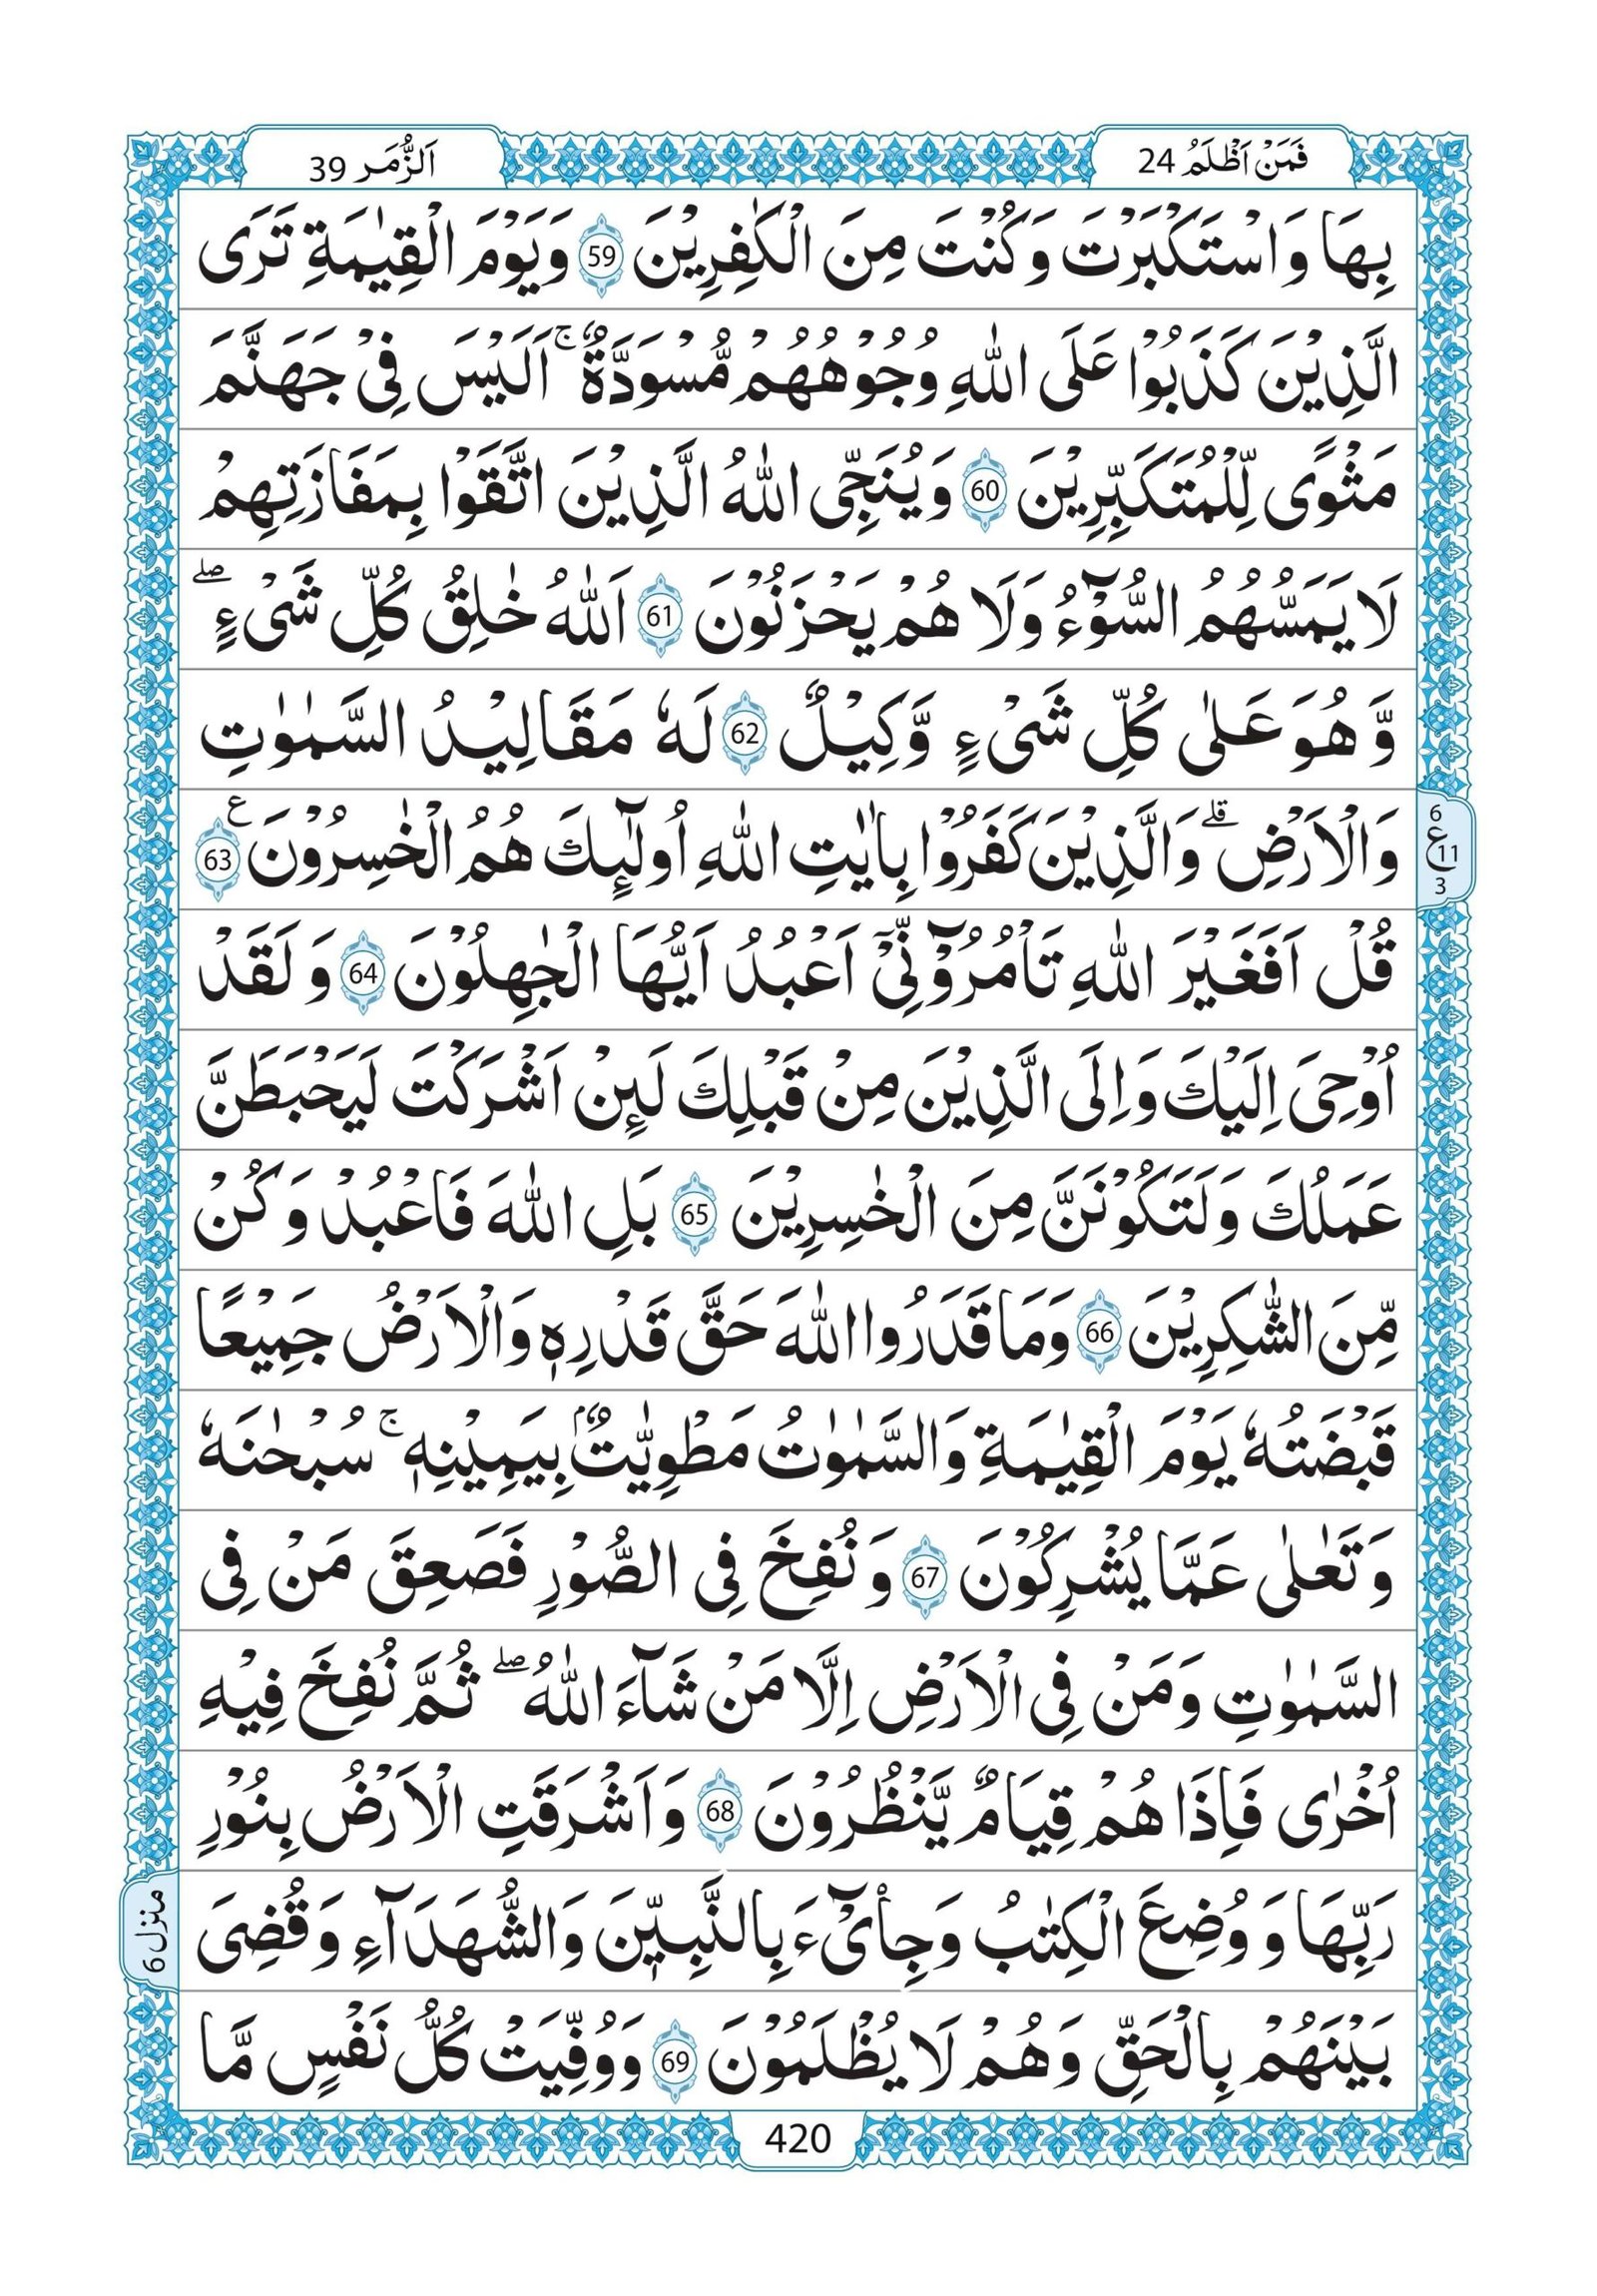 فَمَنْ اَظْلَمُ 24
اَلزُّمَر 39
بِهَا وَاسْتَكْبَرْتَ وَكُنْتَ مِنَ الْكٰفِرِيْنَ 59 وَيَوْمَ الْقِيٰمَةِ تَرَى
الَّذِيْنَ كَذَبُوْا عَلَى اللّٰهِ وُجُوْهُهُمْ مُّسْوَدَّةٌ ۚ اَلَيْسَ فِيْ جَهَنَّمَ
مَثْوًى لِّلْمُتَكَبِّرِيْنَ 60 وَيُنَجِّى اللّٰهُ الَّذِيْنَ اتَّقَوْا بِمَفَازَتِهِمْ
لَا يَمَسُّهُمُ السُّوْٓءُ وَلَا هُمْ يَحْزَنُوْنَ 61 اَللّٰهُ خٰلِقُ كُلِّ شَىْءٍ ۖ
وَّهُوَ عَلٰى كُلِّ شَىْءٍ وَّكِيْلٌ 62 لَهٗ مَقَالِيْدُ السَّمٰوٰتِ
وَالْاَرْضِ ۗ وَالَّذِيْنَ كَفَرُوْا بِاٰيٰتِ اللّٰهِ اُولٰٓئِكَ هُمُ الْخٰسِرُوْنَ ع 63
6 ع 11 3
قُلْ اَفَغَيْرَ اللّٰهِ تَاْمُرُوْٓنِّىْٓ اَعْبُدُ اَيُّهَا الْجٰهِلُوْنَ 64 وَلَقَدْ
اُوْحِىَ اِلَيْكَ وَاِلَى الَّذِيْنَ مِنْ قَبْلِكَ لَئِنْ اَشْرَكْتَ لَيَحْبَطَنَّ
عَمَلُكَ وَلَتَكُوْنَنَّ مِنَ الْخٰسِرِيْنَ 65 بَلِ اللّٰهَ فَاعْبُدْ وَكُنْ
مِّنَ الشّٰكِرِيْنَ 66 وَمَا قَدَرُوا اللّٰهَ حَقَّ قَدْرِهٖ وَالْاَرْضُ جَمِيْعًا
قَبْضَتُهٗ يَوْمَ الْقِيٰمَةِ وَالسَّمٰوٰتُ مَطْوِيّٰتٌۢ بِيَمِيْنِهٖ ۚ سُبْحٰنَهٗ
وَتَعٰلٰى عَمَّا يُشْرِكُوْنَ 67 وَنُفِخَ فِى الصُّوْرِ فَصَعِقَ مَنْ فِى
السَّمٰوٰتِ وَمَنْ فِى الْاَرْضِ اِلَّا مَنْ شَآءَ اللّٰهُ ۖ ثُمَّ نُفِخَ فِيْهِ
اُخْرٰى فَاِذَا هُمْ قِيَامٌ يَّنْظُرُوْنَ 68 وَاَشْرَقَتِ الْاَرْضُ بِنُوْرِ
رَبِّهَا وَوُضِعَ الْكِتٰبُ وَجِاىْٓءَ بِالنَّبِيّٖنَ وَالشُّهَدَآءِ وَقُضِىَ
منزل 6
بَيْنَهُمْ بِالْحَقِّ وَهُمْ لَا يُظْلَمُوْنَ 69 وَوُفِّيَتْ كُلُّ نَفْسٍ مَّا
420